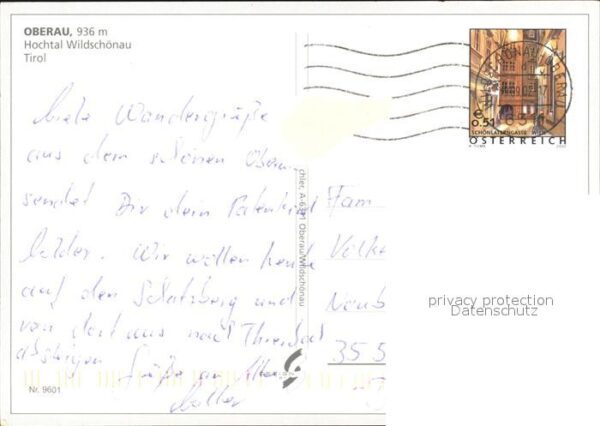 OBERAU, 936 m
Hochtal Wildschönau
Tirol
liebe Wandergrüße
aus dem schönen Oberau
sendet Dir dein Patenkind
Wir wollen heute
auf den Schatzberg und
von dort aus nach Thierbach
absteigen Grüße an Alle
Nr. 9601
chler, A-6311 Oberau/Wildschönau
€ 0,51
SCHÖNLATERNGASSE WIEN
ÖSTERREICH
Fam
Völke
Neub
35 5
privacy protection
Datenschutz